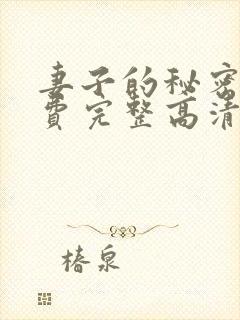 妻子的秘密
費完整高清
椿泉